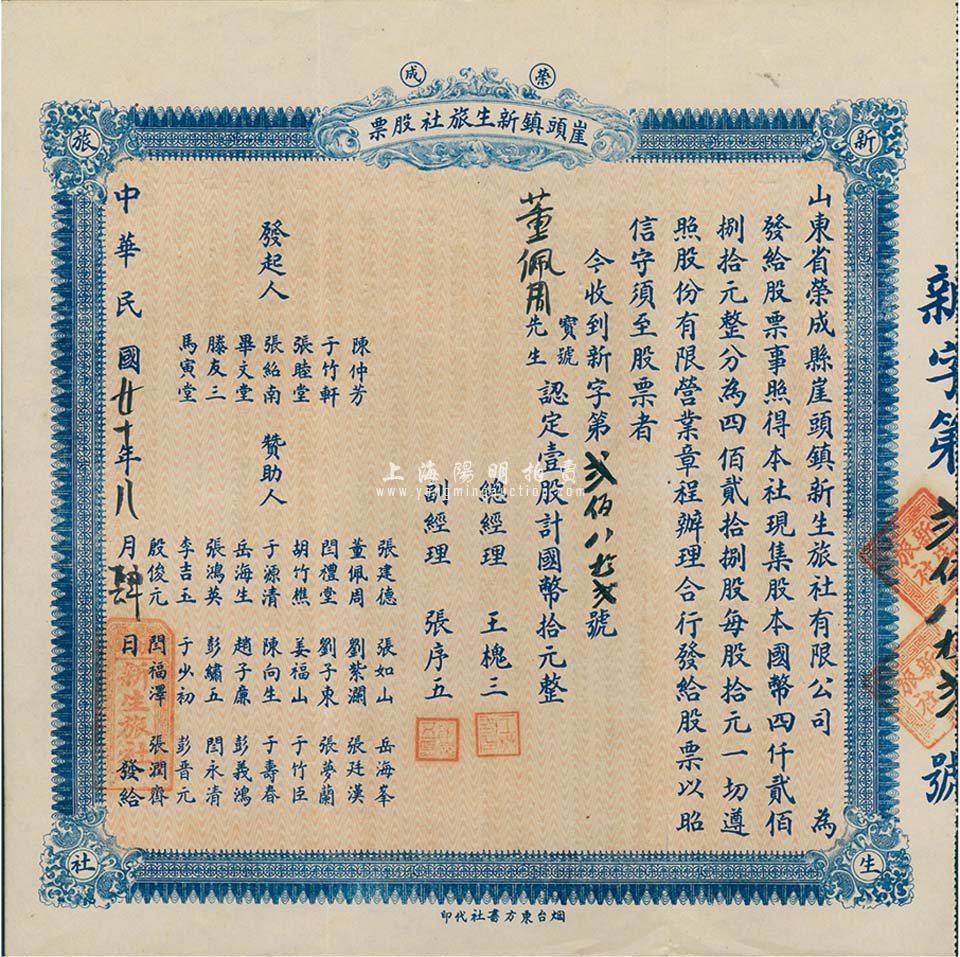 榮成
崖頭鎮新生旅社股票
新
生
旅
社
山東省榮成縣崖頭鎮新生旅社有限公司 為
發給股票事照得本社現集股本國幣四仟貳佰
捌拾元整分為四佰貳拾捌股每股拾元一切遵
照股份有限營業章程辦理合行發給股票以昭
信守須至股票者
今收到新字第 號
董佩周 寶號 先生 認定壹股計國幣拾元整
總經理 王槐三
副經理 張序五
發起人
陳仲芳
于竹軒
張睦堂
張紿南
畢文堂
滕友三
馬寅堂
贊助人
張建德 張如山 岳海峯
董佩周 劉紫瀾 張廷漢
閆禮堂 劉子東 張夢蘭
胡竹樵 姜福山 于竹臣
于源清 陳向生 于壽春
岳海生 趙子廉 彭義鴻
張鴻英 彭繡五 閆永清
李吉玉 于火初 彭晉元
殷俊元 閆福澤 張潤齊
中華民國廿十年八月肆日發給
新生旅社
新字第 號
烟台東方書社代印
上海陽明拍賣
www.yangmingauction.com